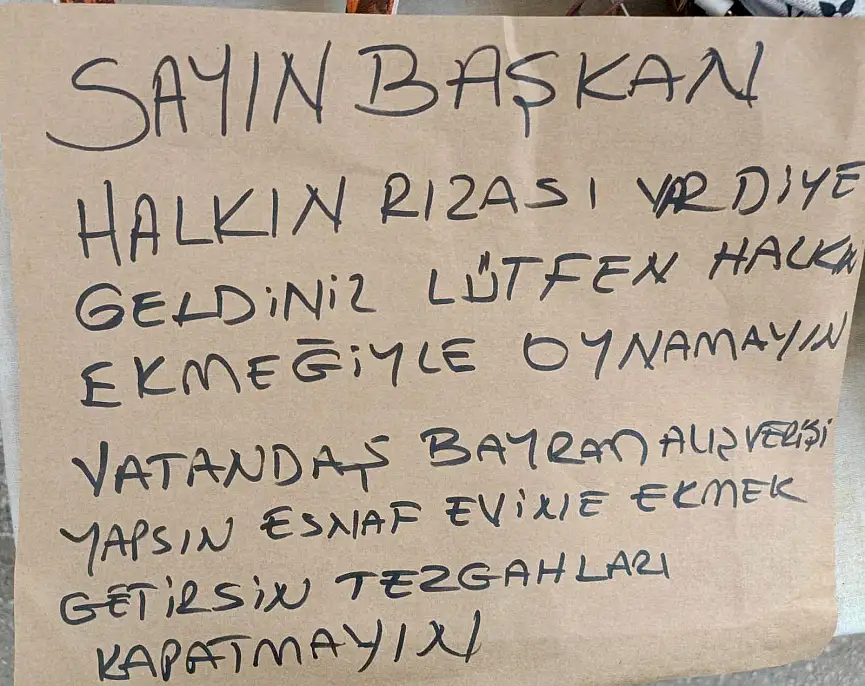 SAYIN BAŞKAN
HALKIN RIZASI VAR DİYE
GELDİNİZ LÜTFEN HALKIN
EKMEĞİYLE OYNAMAYIN
VATANDAŞ BAYRAM ALIŞVERİŞİ
YAPSIN ESNAF EVİNE EKMEK
GETİRSİN TEZGAHLARI
KAPATMAYIN